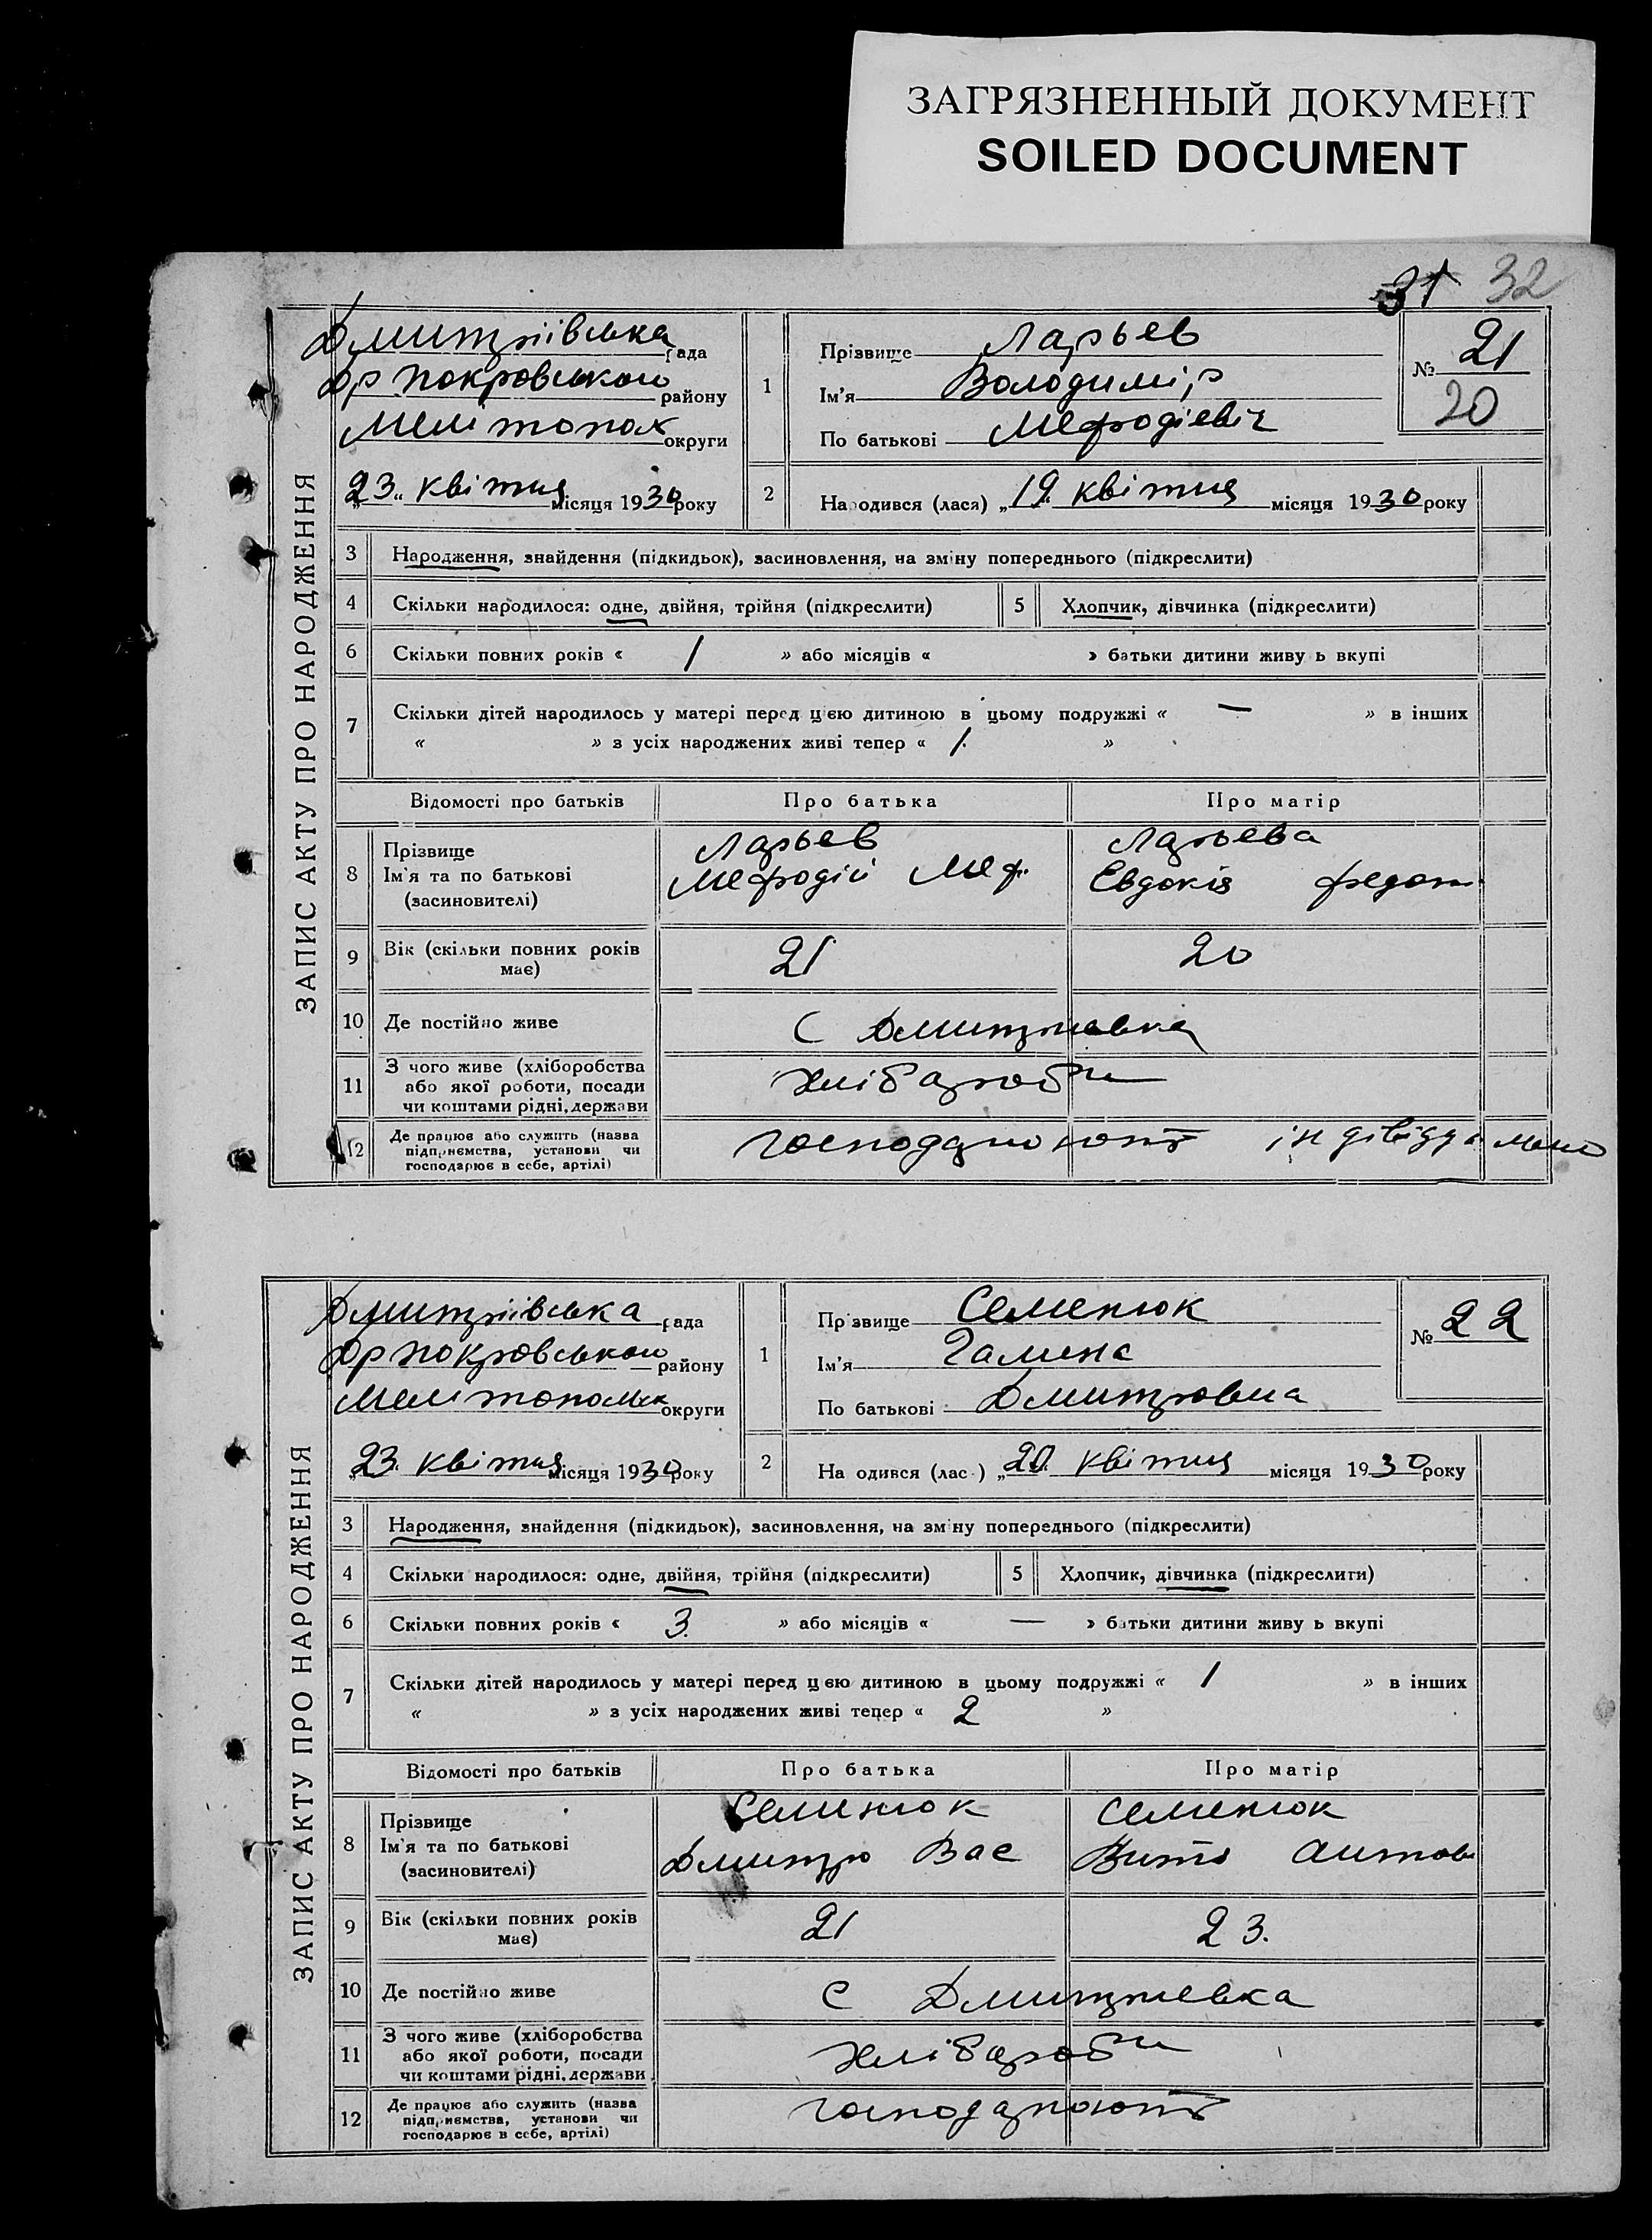 ЗАГРЯЗНЕННЫЙ ДОКУМЕНТ
SOILED DOCUMENT
31 32
ЗАПИС АКТУ ПРО НАРОДЖЕННЯ
Дмитріівська рада
району
округи
„23“ квітня місяця 1930 року
1
Прізвище Ларьев
Ім'я Володимір
По батькові Мефодіевіч
№ 21
20
2 Народився (лася) „19“ квітня місяця 1930 року
3 Народження, знайдення (підкидьок), засиновлення, на зміну попереднього (підкреслити)
4 Скільки народилося: одне, двійня, трійня (підкреслити) 5 Хлопчик, дівчинка (підкреслити)
6 Скільки повних років « 1 » або місяців « » батьки дитини живу ь вкупі
7 Скільки дітей народилось у матері перед цією дитиною в цьому подружжі « — » в інших
« » з усіх народжених живі тепер « 1. »
Відомості про батьків Про батька Про матір
8 Прізвище Ларьев Ларьева
Ім'я та по батькові Мефодій Меф. Евдокія Федот
(засиновителі)
9 Вік (скільки повних років має) 21 20
10 Де постійно живе С Дмитриевка
11 З чого живе (хліборобства
або якої роботи, посади
чи коштами рідні, держави
12 Де працює або служить (назва
підприємства, установи чи
господарює в себе, артілі)
господарюють
ЗАПИС АКТУ ПРО НАРОДЖЕННЯ
Дмитріівська рада
району
округи
„23. квітня місяця 1930 року
1
Пр звище Семенюк
Ім'я Галина
По батькові Дмитровна
№ 22
2 На одився (лас ) „20. квітня місяця 1930 року
3 Народження, знайдення (підкидьок), засиновлення, на зміну попереднього (підкреслити)
4 Скільки народилося: одне, двійня, трійня (підкреслити) 5 Хлопчик, дівчинка (підкреслити)
6 Скільки повних років « 3. » або місяців « — » батьки дитини живу ь вкупі
7 Скільки дітей народилось у матері перед цією дитиною в цьому подружжі « 1 » в інших
« » з усіх народжених живі тепер « 2 »
Відомості про батьків Про батька Про матір
8 Прізвище Семенюк Семенюк
Ім'я та по батькові Дмитро Вас
(засиновителі)
9 Вік (скільки повних років має) 21 23.
10 Де постійно живе С Дмитриевка
11 З чого живе (хліборобства
або якої роботи, посади
чи коштами рідні, держави
12 Де працює або служить (назва
підприємства, установи чи
господарює в себе, артілі)
господарюють